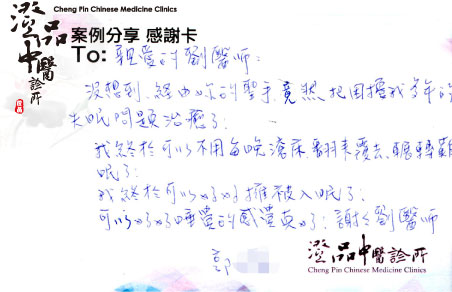 Cheng Pin Chinese Medicine Clinics
澄品中醫診所
案例分享 感謝卡
To: 親愛的劉醫師:
沒想到,經由妳的聖手,竟然把困擾我多年的
失眠問題治癒了!
我終於可以不用每晚滾床、翻來覆去、輾轉難
眠了!
我終於可以好好擁被入眠了!
可以好好睡覺的感覺真好!謝謝劉醫師
郭
澄品中醫診所
Cheng Pin Chinese Medicine Clinics